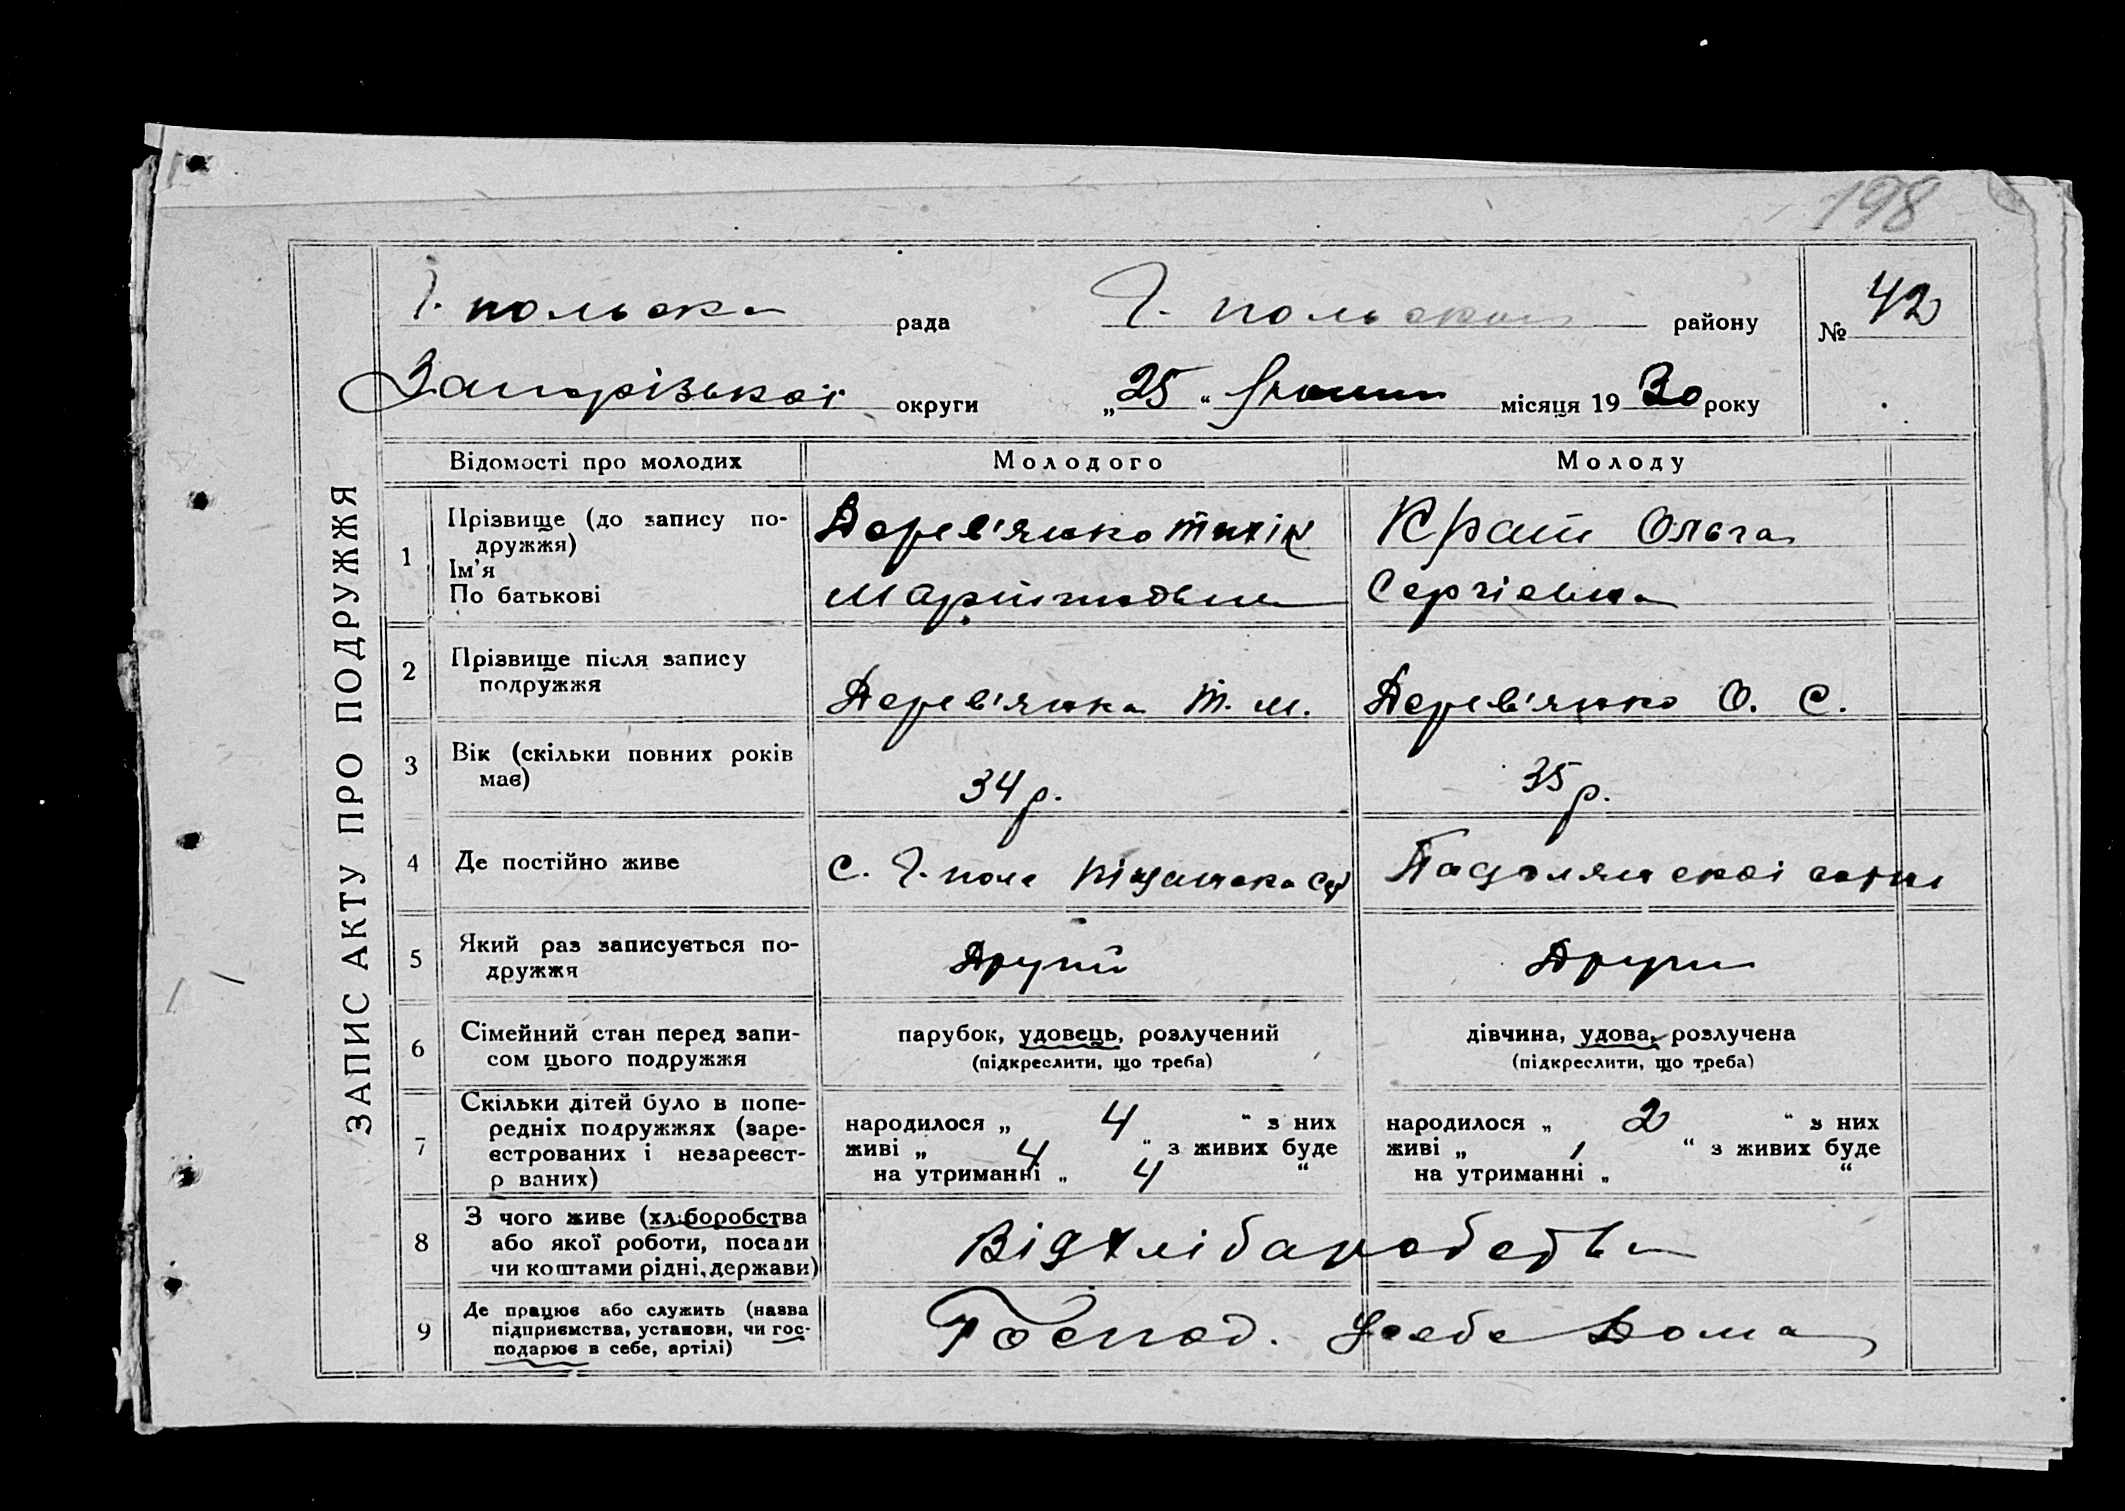 198
Г. польска рада Г. польског району № 42
Запорізької округи „25“ місяця 1930 року
ЗАПИС АКТУ ПРО ПОДРУЖЖЯ
Відомості про молодих Молодого Молоду
1 Прізвище (до запису по-
дружжя)
Ім’я
По батькові
Дерев'янко Тихін
Край Ольга
Сергієвна
2 Прізвище після запису
подружжя
Дерев'янко Т. М. Дерев'янко О. С.
3 Вік (скільки повних років
має)
34 р. 35 р.
4 Де постійно живе
С. Г. поле Піщанска
5 Який раз записується по-
дружжя
Другий Други
6 Сімейний стан перед запи-
сом цього подружжя
парубок, удовець, розлучений
(підкреслити, що треба)
дівчина, удова, розлучена
(підкреслити, що треба)
7 Скільки дітей було в попе-
редніх подружжях (заре-
єстрованих і незареєст-
р ваних)
народилося „ 4 “ з них
живі „ 4 “ з живих буде
на утриманні „ 4 “
народилося „ 2 “ з них
живі „ 1 “ з живих буде
на утриманні „ “
8 З чого живе (хліборобства
або якої роботи, посади
чи коштами рідні, держави)
Від хлібаробства
9 Де працює або служить (назва
підприємства, установи, чи гос-
подарює в себе, артілі)
Господ. Усебе Дома